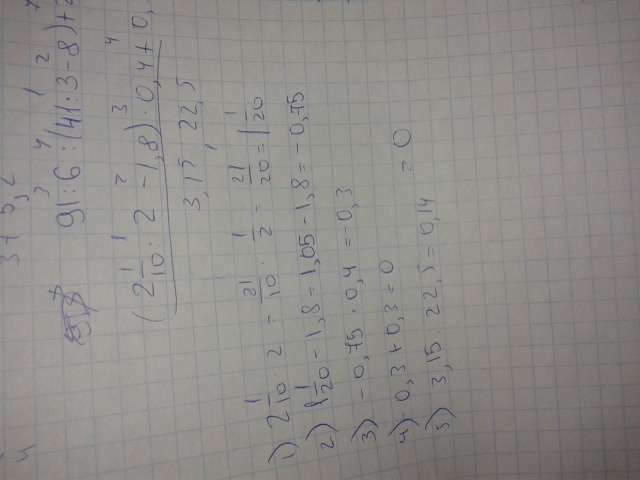 3 + 5,2
91 : 6 : (41 : 3 - 8) + 2
(2 1/10 : 2 - 1,8) · 0,4 + 0,
3,15 : 22,5
1) 2 1/10 : 2 = 21/10 · 1/2 = 21/20 = 1 1/20
2) 1 1/20 - 1,8 = 1,05 - 1,8 = -0,75
3) -0,75 · 0,4 = -0,3
4) 0,3 + 0,3 = 0 = 0
5) 3,15 : 22,5 = 0,14